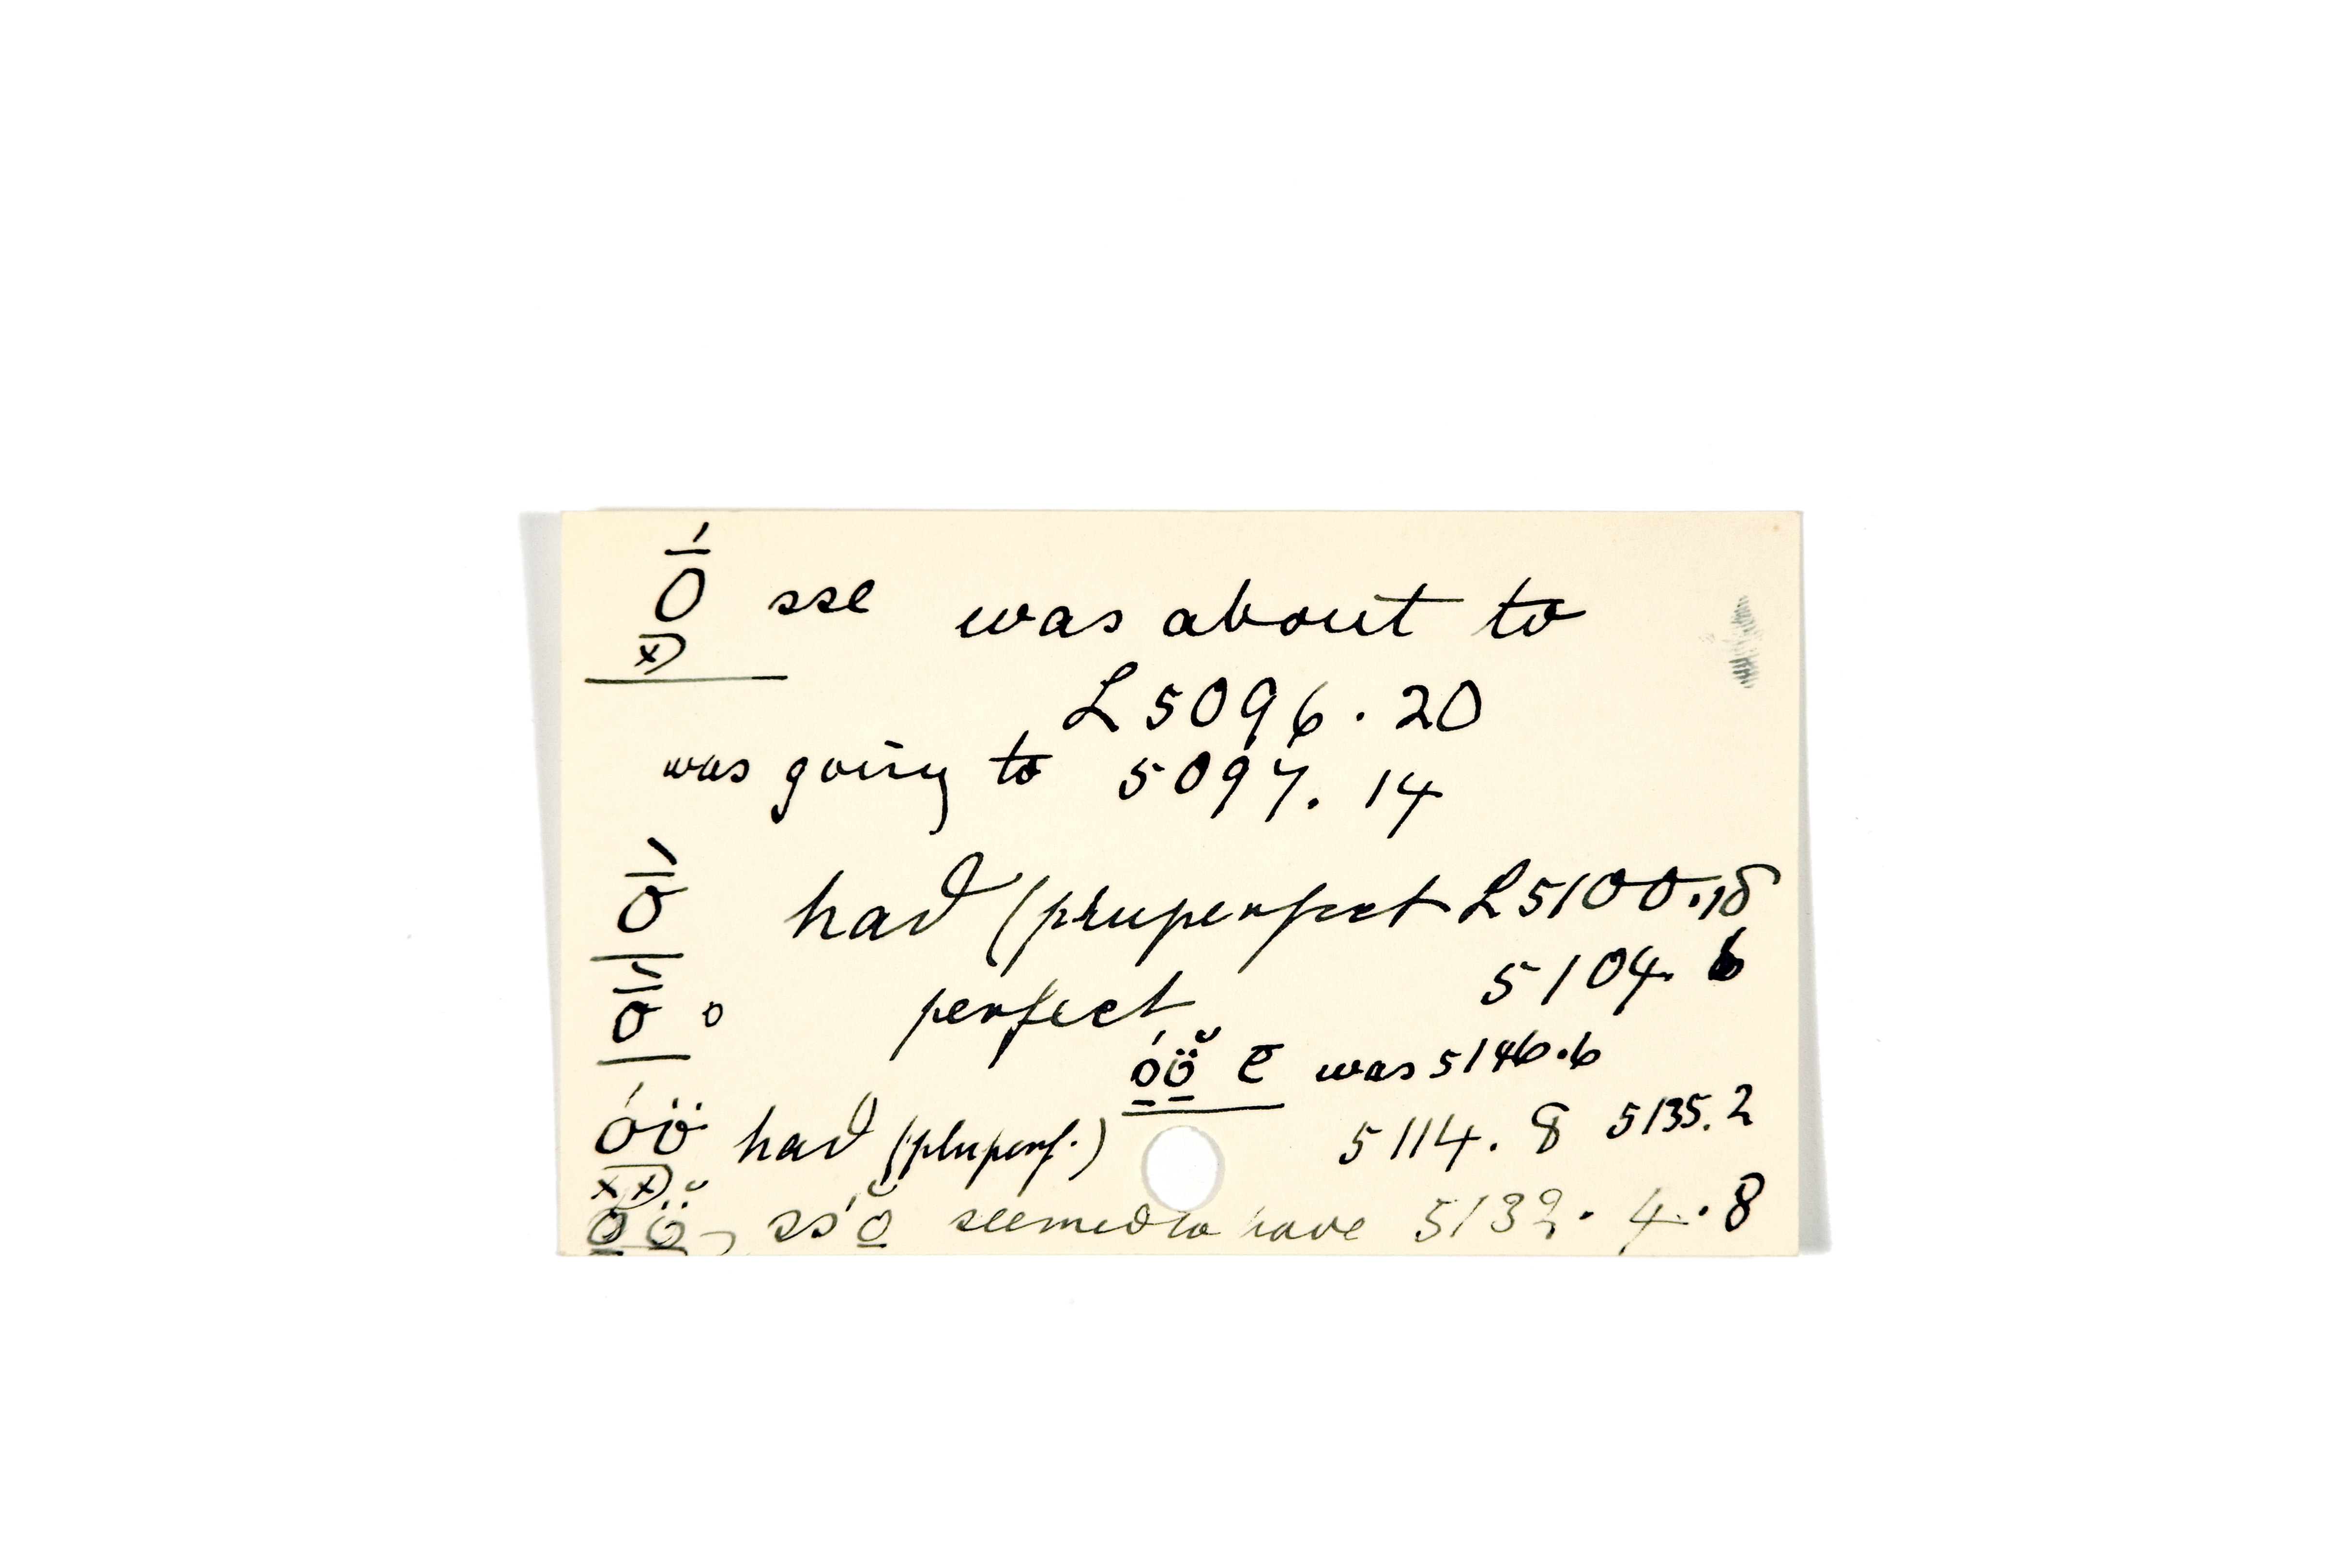 ṓ sse was about to
L5096.20
was going to 5097.14
ṓ had (pluperfect L5100.18
ṓ o perfect 5104.6
óö̆ c̄ was 5146.6
óö had (pluperf.) 5114.8 5135.2
ss'ŏ̱ seemed to have 5132.4.8